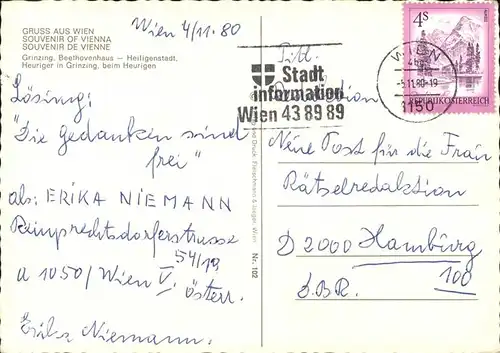 GRUSS AUS WIEN
SOUVENIR OF VIENNA
SOUVENIR DE VIENNE
Grinzing, Beethovenhaus — Heiligenstadt,
Heuriger in Grinzing, beim Heurigen
Wien 4/11.80
Lösung:
"Die Gedanken sind
frei"
als: ERIKA NIEMANN
Reinprechtsdorferstrasse
54/13
A 1050/Wien V.
Österr.
Erika Niemann.
Druck: Nr. 102
Titl.
Stadt
information
Wien 43 89 89
4S
REPUBLIK ÖSTERREICH
WIEN
-5.11.80-19
1150
Redaktion
Neue Post für die Frau
Rätselredaktion
D 2000 Hamburg
100
D.B.R.